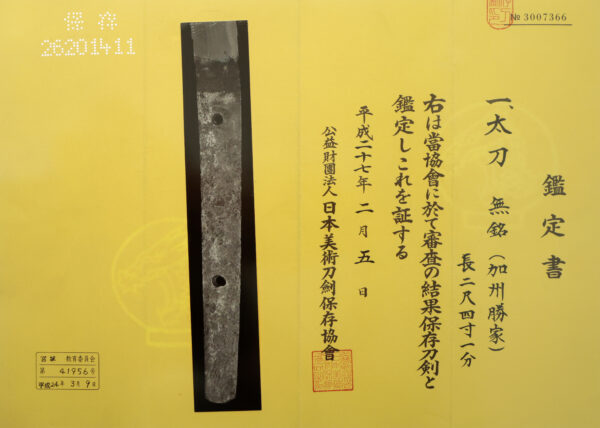 № 3007366
鑑定書
一、太刀 無銘（加州勝家）
長二尺四寸一分
右は當協會に於て審査の結果保存刀剣と
鑑定しこれを証する
平成二十七年二月五日
公益財團法人日本美術刀劍保存協會
保存
26201411
教育委員会
第 41956 号
平成24年3月9日